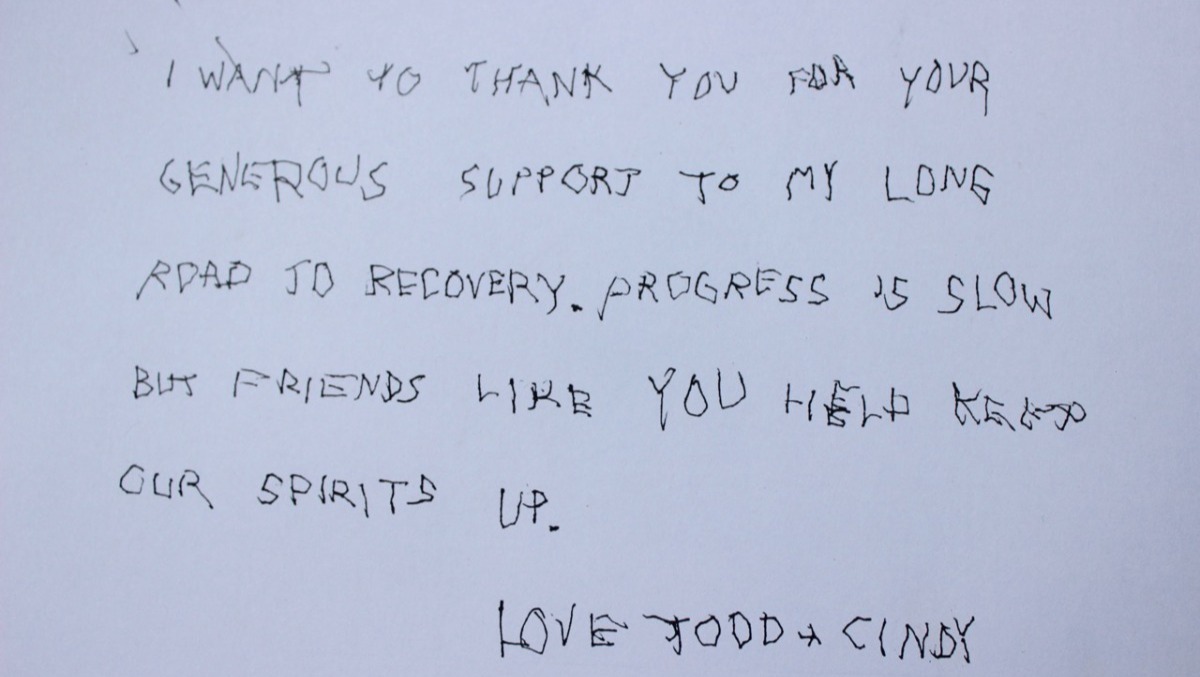 I WANT TO THANK YOU FOR YOUR
GENEROUS SUPPORT TO MY LONG
ROAD TO RECOVERY. PROGRESS IS SLOW
BUT FRIENDS LIKE YOU HELP KEEP
OUR SPIRITS UP.
LOVE TODD + CINDY